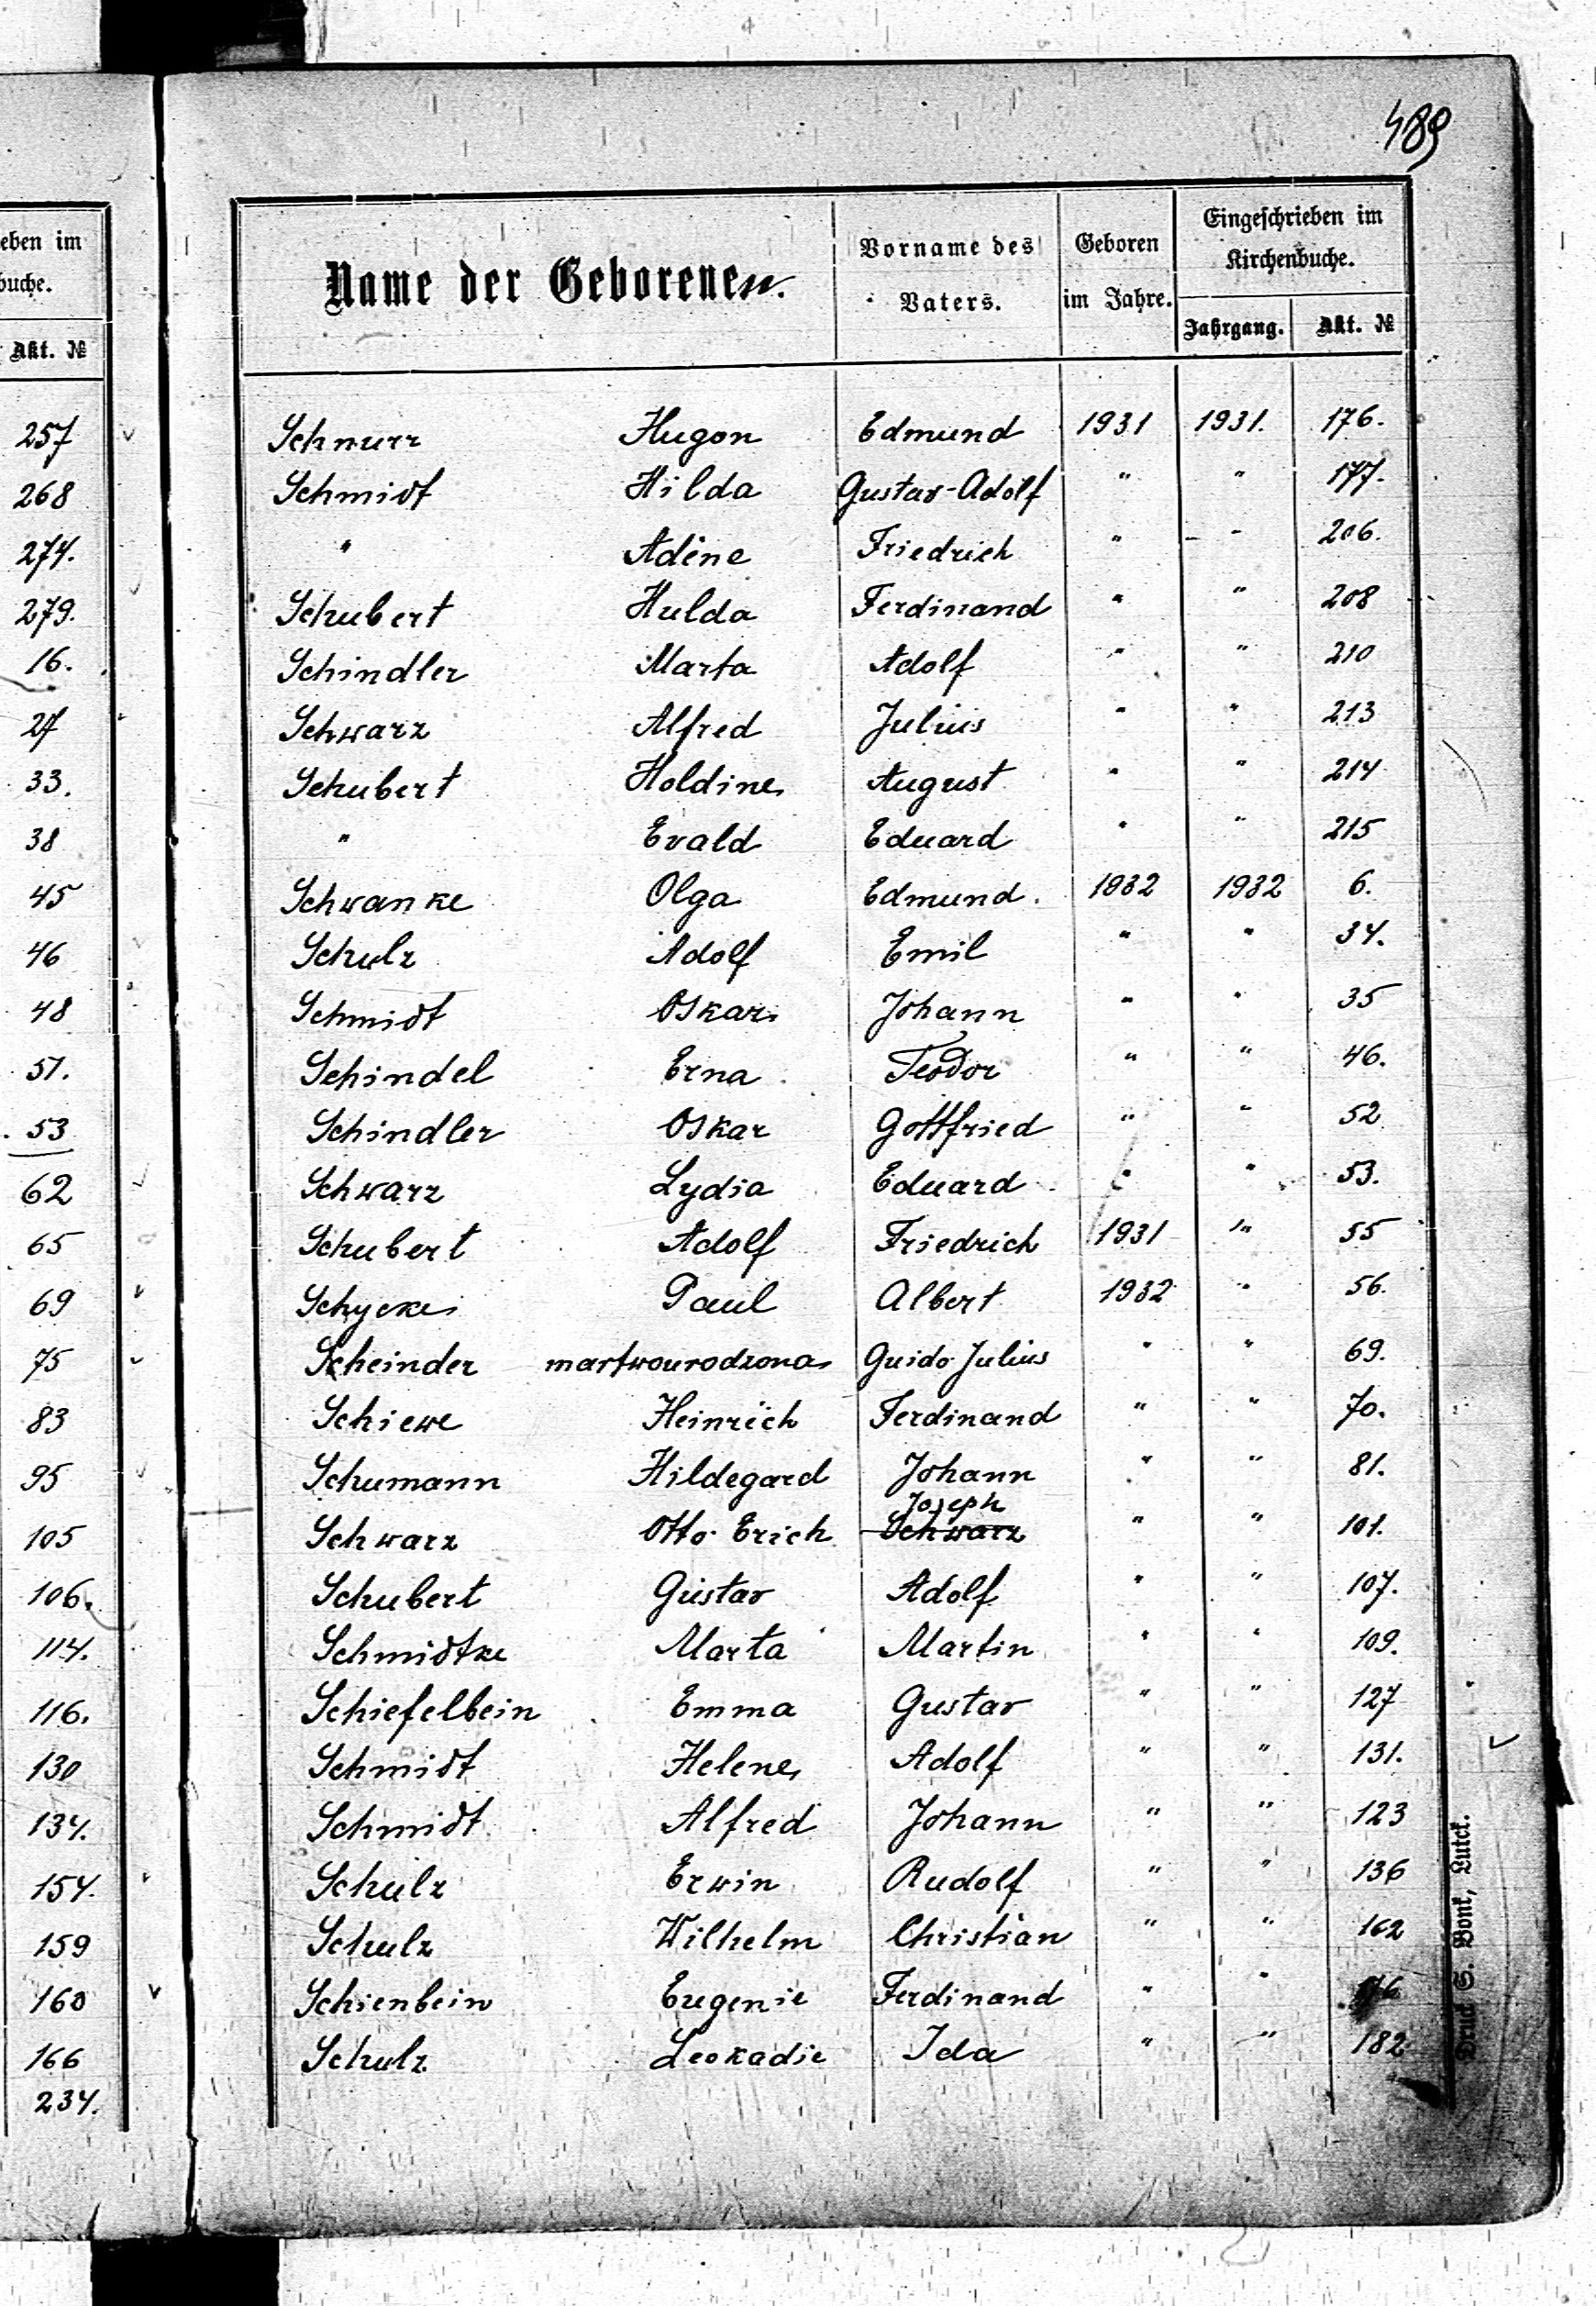 489
eben im
buche.
Akt. №
257
268
274.
279.
16.
27
33.
38
45
46
48
51.
53
62
65
69
75
83
95
105
106.
114.
116.
130
134.
154.
159
160
166
234.
Name der Geborenen. Vorname des Vaters. Geboren im Jahre. Eingeschrieben im Kirchenbuche.
Jahrgang. Akt. №
Schnurr Hugon Edmund 1931 1931. 176.
Schmidt Hilda Gustav-Adolf " " 177.
" Adéne Friedrich " " 206.
Schubert Hulda Ferdinand " " 208
Schindler Marta Adolf " " 210
Schwarz Alfred Julius " " 213
Schubert Holdine August " " 214
" Evald Eduard " " 215
Schwanke Olga Edmund. 1932 1932 6.
Schulz Adolf Emil " " 34.
Schmidt Oskar Johann " " 35
Schindel Erna Teodor " " 46.
Schindler Oskar Gottfried " " 52
Schwarz Lydia Eduard " " 53.
Schubert Adolf Friedrich 1931 " 55
Schycke Paul Albert 1932 " 56.
Scheinder martwourodzona Guido Julius " " 69.
Schiewe Heinrich Ferdinand " " 70.
Schumann Hildegard Johann " " 81.
Joseph
Schwarz Otto Erich Schwarz " " 101.
Schubert Gustav Adolf " " 107.
Schmidtke Marta Martin " " 109.
Schiefelbein Emma Gustav " " 127
Schmidt Helene Adolf " " 131.
Schmidt Alfred Johann " " 123
Schulz Erwin Rudolf " " 136
Schulz Wilhelm Christian " " 162
Schienbein Eugenie Ferdinand " "
Schulz Leokadie Ida " " 182
Druck S. Bonk, Lutck.